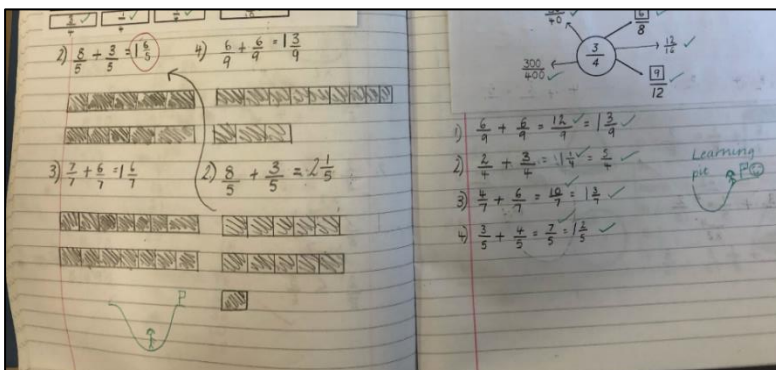 2) 8/5 + 3/5 = 1 6/5
4) 6/9 + 6/9 = 1 3/9
3) 7/7 + 6/7 = 1 6/7
2) 8/5 + 3/5 = 2 1/5
P
6/8
3/4
12/16
300/400
9/12
1) 6/9 + 6/9 = 12/9 = 1 3/9
2) 2/4 + 3/4 = 1 1/4 = 5/4
3) 4/7 + 6/7 = 10/7 = 1 3/7
4) 3/5 + 4/5 = 7/5 = 1 2/5
Learning
pit